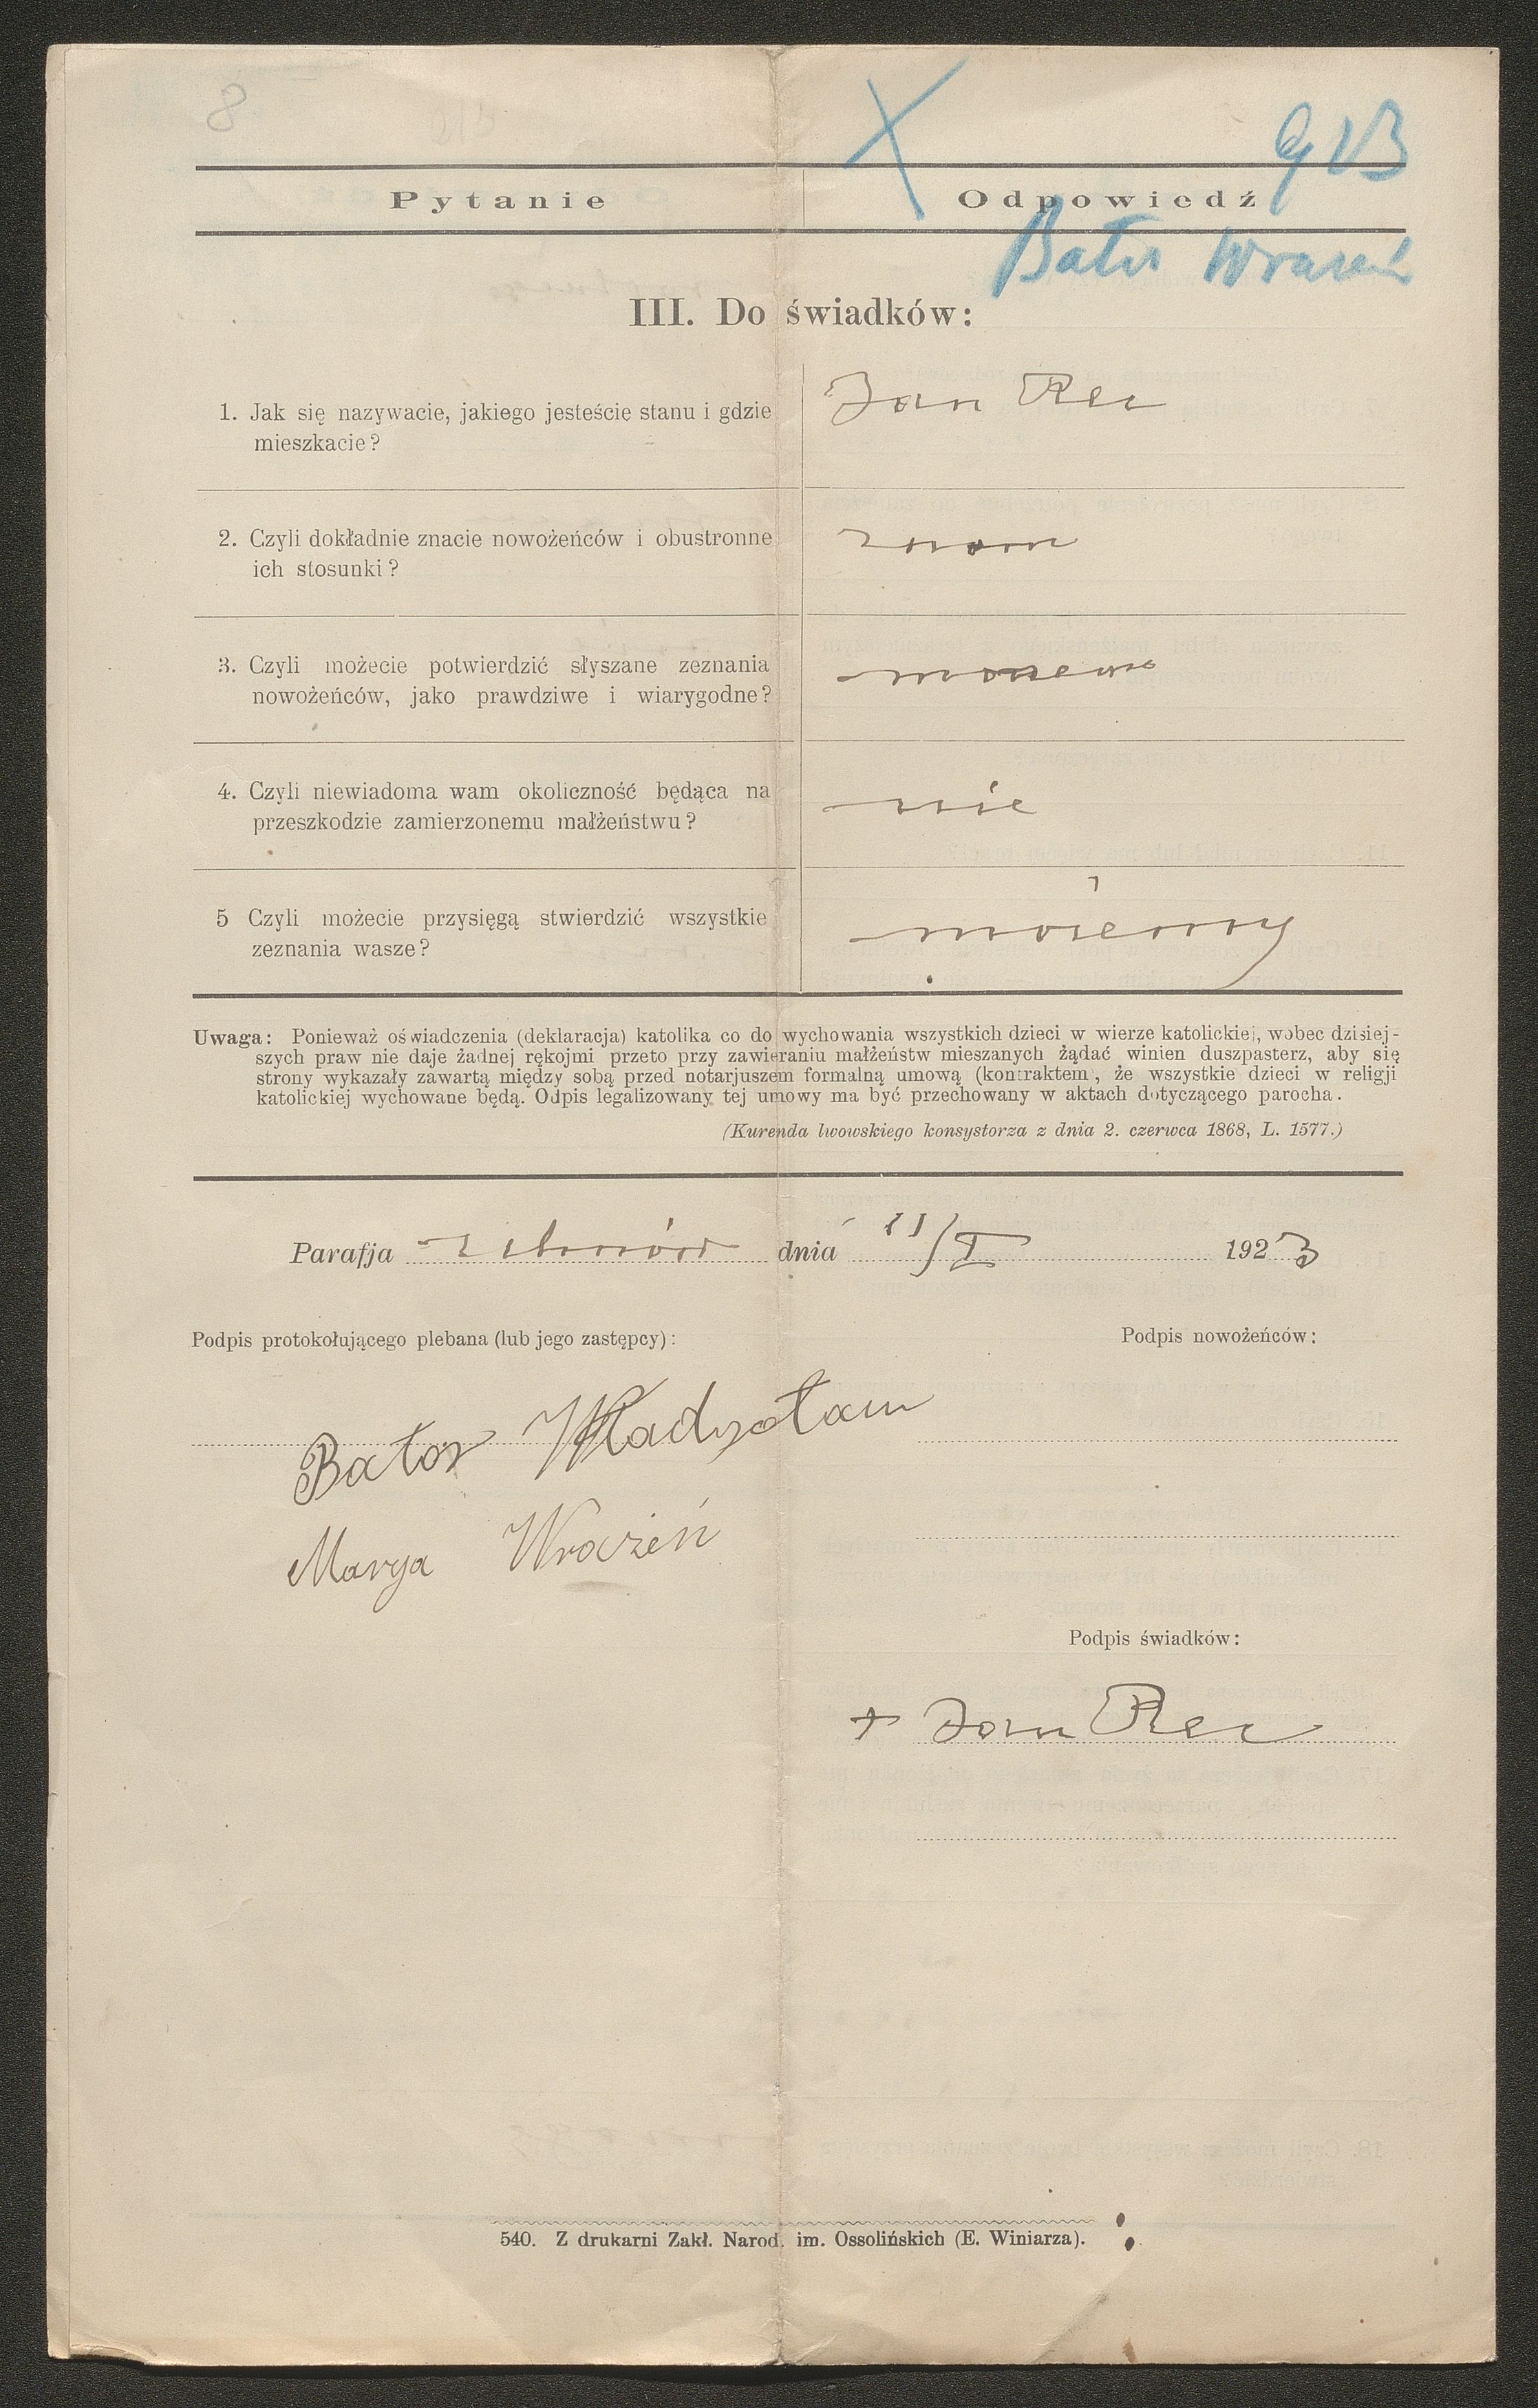 8
X
Pytanie
Odpowiedź
Bator Wrażeń
III. Do świadków:
1. Jak się nazywacie, jakiego jesteście stanu i gdzie
mieszkacie?
Jan Rec
2. Czyli dokładnie znacie nowożeńców i obustronne
ich stosunki?
znam
3. Czyli możecie potwierdzić słyszane zeznania
nowożeńców, jako prawdziwe i wiarygodne?
4. Czyli niewiadoma wam okoliczność będąca na
przeszkodzie zamierzonemu małżeństwu?
nie
5 Czyli możecie przysięgą stwierdzić wszystkie
zeznania wasze?
możemy
Uwaga: Ponieważ oświadczenia (deklaracja) katolika co do wychowania wszystkich dzieci w wierze katolickiej, wobec dzisiej-
szych praw nie daje żadnej rękojmi przeto przy zawieraniu małżeństw mieszanych żądać winien duszpasterz, aby się
strony wykazały zawartą między sobą przed notarjuszem formalną umową (kontraktem, że wszystkie dzieci w religji
katolickiej wychowane będą. Odpis legalizowany tej umowy ma być przechowany w aktach dotyczącego parocha.
(Kurenda lwowskiego konsystorza z dnia 2. czerwca 1868, L. 1577.)
Parafja dnia 11/I 1923
Podpis protokołującego plebana (lub jego zastępcy):
Podpis nowożeńców:
Bator Władysław
Marya Wrażeń
Podpis świadków:
+ Jan Rec
540. Z drukarni Zakł. Narod. im. Ossolińskich (E. Winiarza).